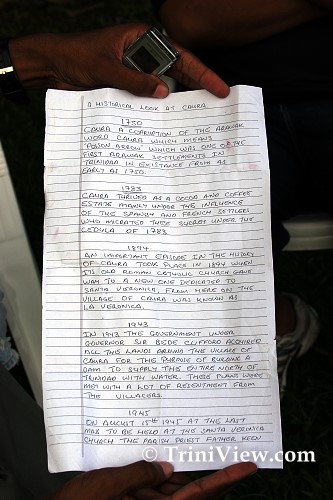 A HISTORICAL LOOK AT CAURA.
1750
CAURA A CORRUPTION OF THE ARAWAK
WORD CAURA WHICH MEANS
'POISON ARROW' WHICH WAS ONE OF THE
FIRST ARAWAK SETTLEMENTS IN
TRINIDAD IN EXISTANCE FROM AS
EARLY AS 1750.
1783
CAURA THRIVED AS A COCOA AND COFFEE
ESTATE MAINLY UNDER THE INFLUENCE
OF THE SPANISH AND FRENCH SETTLERS
WHO MIGRATED THERE UNDER THE
CEDULA OF 1783
1894
AN IMPORTANT EPISODE IN THE HISTORY
OF CAURA TOOK PLACE IN 1894 WHEN
OLD ROMAN CATHOLIC CHURCH GAVE
WAY TO A NEW ONE DEDICATED TO
SANTA VERONICA. FROM HERE ON THE
VILLAGE OF CAURA WAS KNOWN AS
LA VERONICA.
1943
IN 1943 THE GOVERNMENT UNDER
GOVERNOR SIR BEDE CLIFFORD ACQUIRED
ALL THE LANDS AROUND THE VILLAGE OF
CAURA FOR THE PURPOSE OF BUILDING A
DAM TO SUPPLY THE ENTIRE NORTH OF
TRINIDAD WITH WATER. THESE PLANS WERE
MET WITH A LOT OF RESENTMENT FROM
THE VILLAGERS.
1945
ON AUGUST 15TH 1945 AT THE LAST
MAS TO BE HELD AT THE SANTA VERONICA
CHURCH THE PARISH PRIEST FATHER KEEN
© TriniView.com